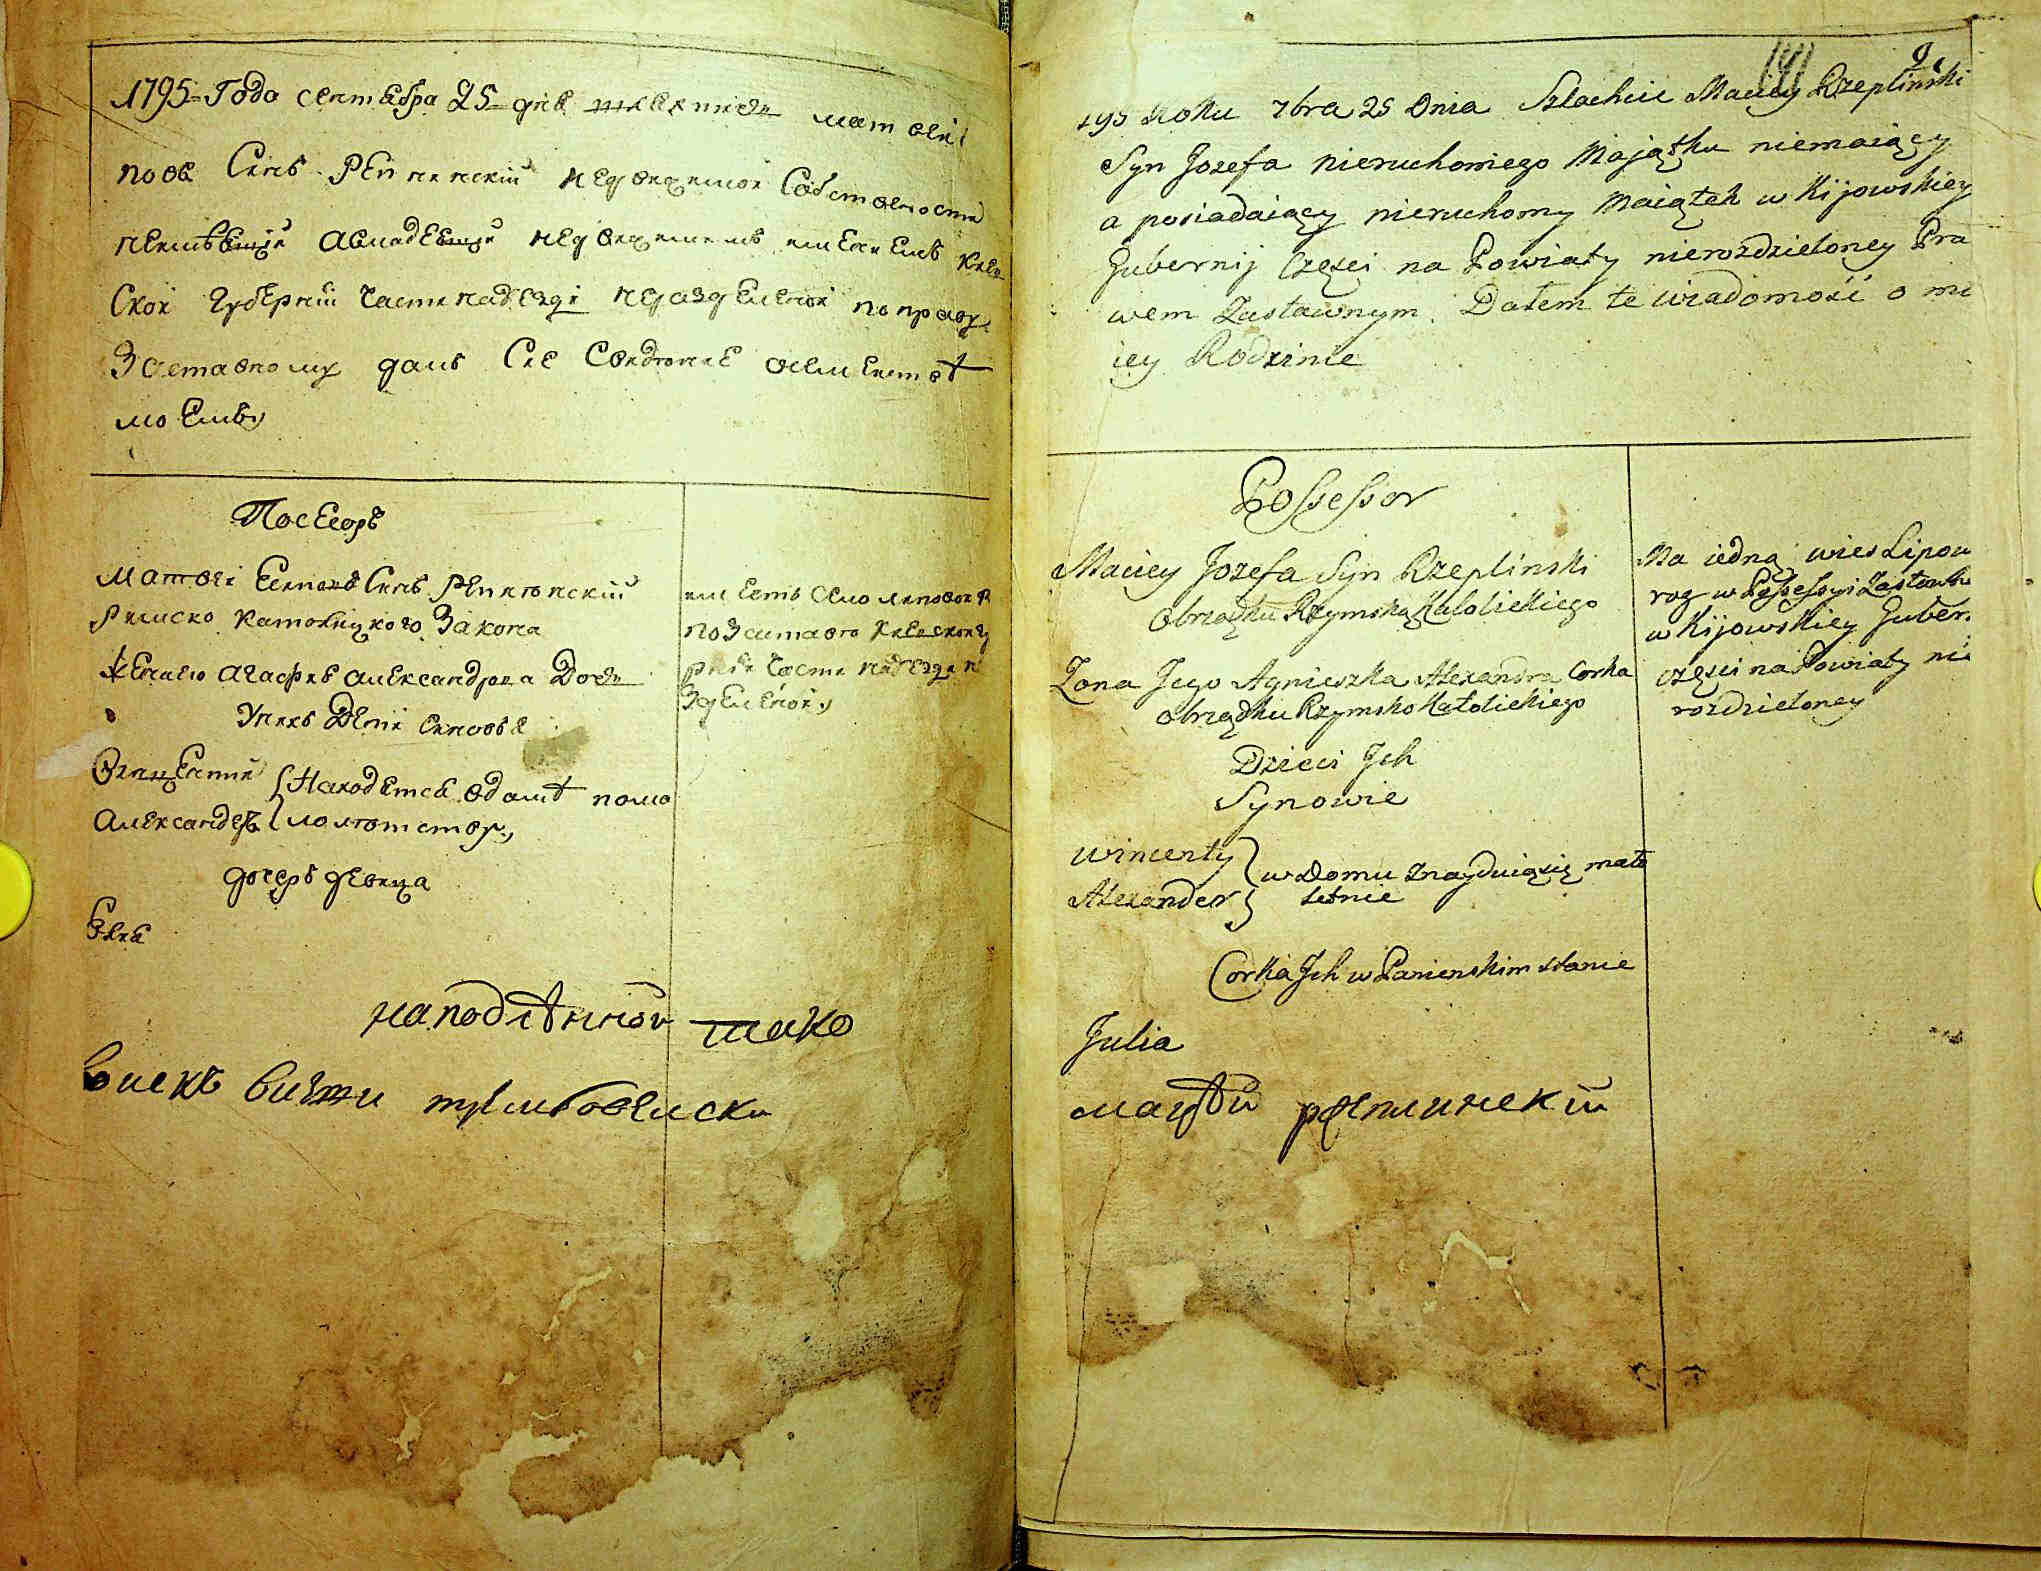 1795 Года сентебра 25 дне шлехтичь матвеи
Сынъ Реплинскіи недвежимои собствености
неимѣющи авладеющи недвижемемъ имением Киев
скои губернии части науезди неразделенои поправу
Заставному далъ Сие Сведоние осемеистѣ
моемъ
Посесоръ
Матвеи Сынъ Реплинскии
Римско католицкого Закона
жена его агафия александрова Дочь
Унихъ Дети Синовье
Винценти
Александеръ
Находетса вдомѣ помо
молотству
дочерь девица
Юлиа
имеетъ село
позаставе Киевскои гу
части науезди н
Зделенои
наподлѣнной тако
Матѣй Репплинскій
9
1795 Roku 7bra 25 Dnia Szlachcic Maciey Rzeplinski
Syn Jozefa nieruchomego Mająthu niemaiący
a posiadaiący nieruchomy Maiątek w Kijowskiey
Gubernij Częsci na Powiaty nierozdzieloney Pra
wem Zastawnym. Dałem te wiadomość o mo
iey Rodzinie
Possessor
Maciey Jozefa Syn Rzeplinski
Obrządku Rzymsko Katolickiego
Zona Jego Agnieszka Alexandra Corka
Obrządku Rzymsko Katolickiego
Dzieci Jch
Synowie
Wincenty
Alexander
w Domu Znayduią się mało
letnie
Corka Jch w Panienskim stanie
Julia
Ma iedną wies Lipow
rog w Possessyi Zastawn
w Kijowskiey Guber.
częsci na Powiaty nie
rozdzieloney